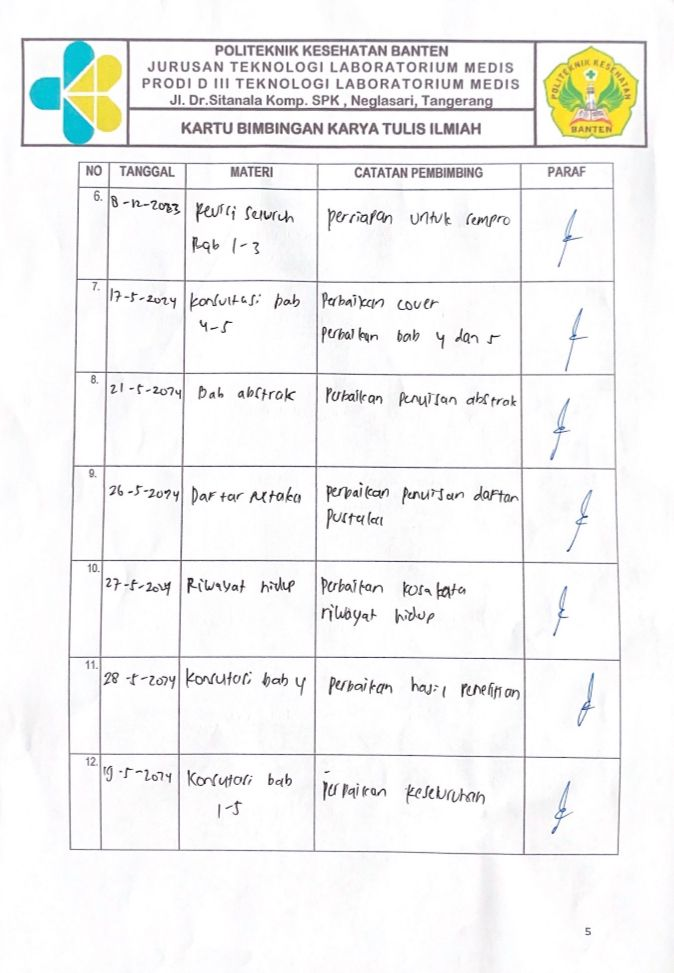 POLITEKNIK KESEHATAN BANTEN
JURUSAN TEKNOLOGI LABORATORIUM MEDIS
PRODI D III TEKNOLOGI LABORATORIUM MEDIS
Jl. Dr.Sitanala Komp. SPK , Neglasari, Tangerang
KARTU BIMBINGAN KARYA TULIS ILMIAH
POLITEKNIK KESEHATAN
BANTEN
NO TANGGAL MATERI CATATAN PEMBIMBING PARAF
6. 8-12-2023 Revisi seluruh persiapan untuk sempro
Bab 1-3
7. 17-5-2024 Konsultasi bab Perbaikan cover
4-5 perbaikan bab 4 dan 5
8. 21-5-2024 Bab abstrak Perbaikan penulisan abstrak
9. 26-5-2024 Daftar Pustaka perbaikan penulisan daftar
Pustaka
10. 27-5-2024 Riwayat hidup Perbaikan kosa kata
riwayat hidup
11. 28-5-2024 Konsultasi bab 4 perbaikan hasil penelitian
12. 19-5-2024 Konsultasi bab perbaikan keseluruhan
1-5
5